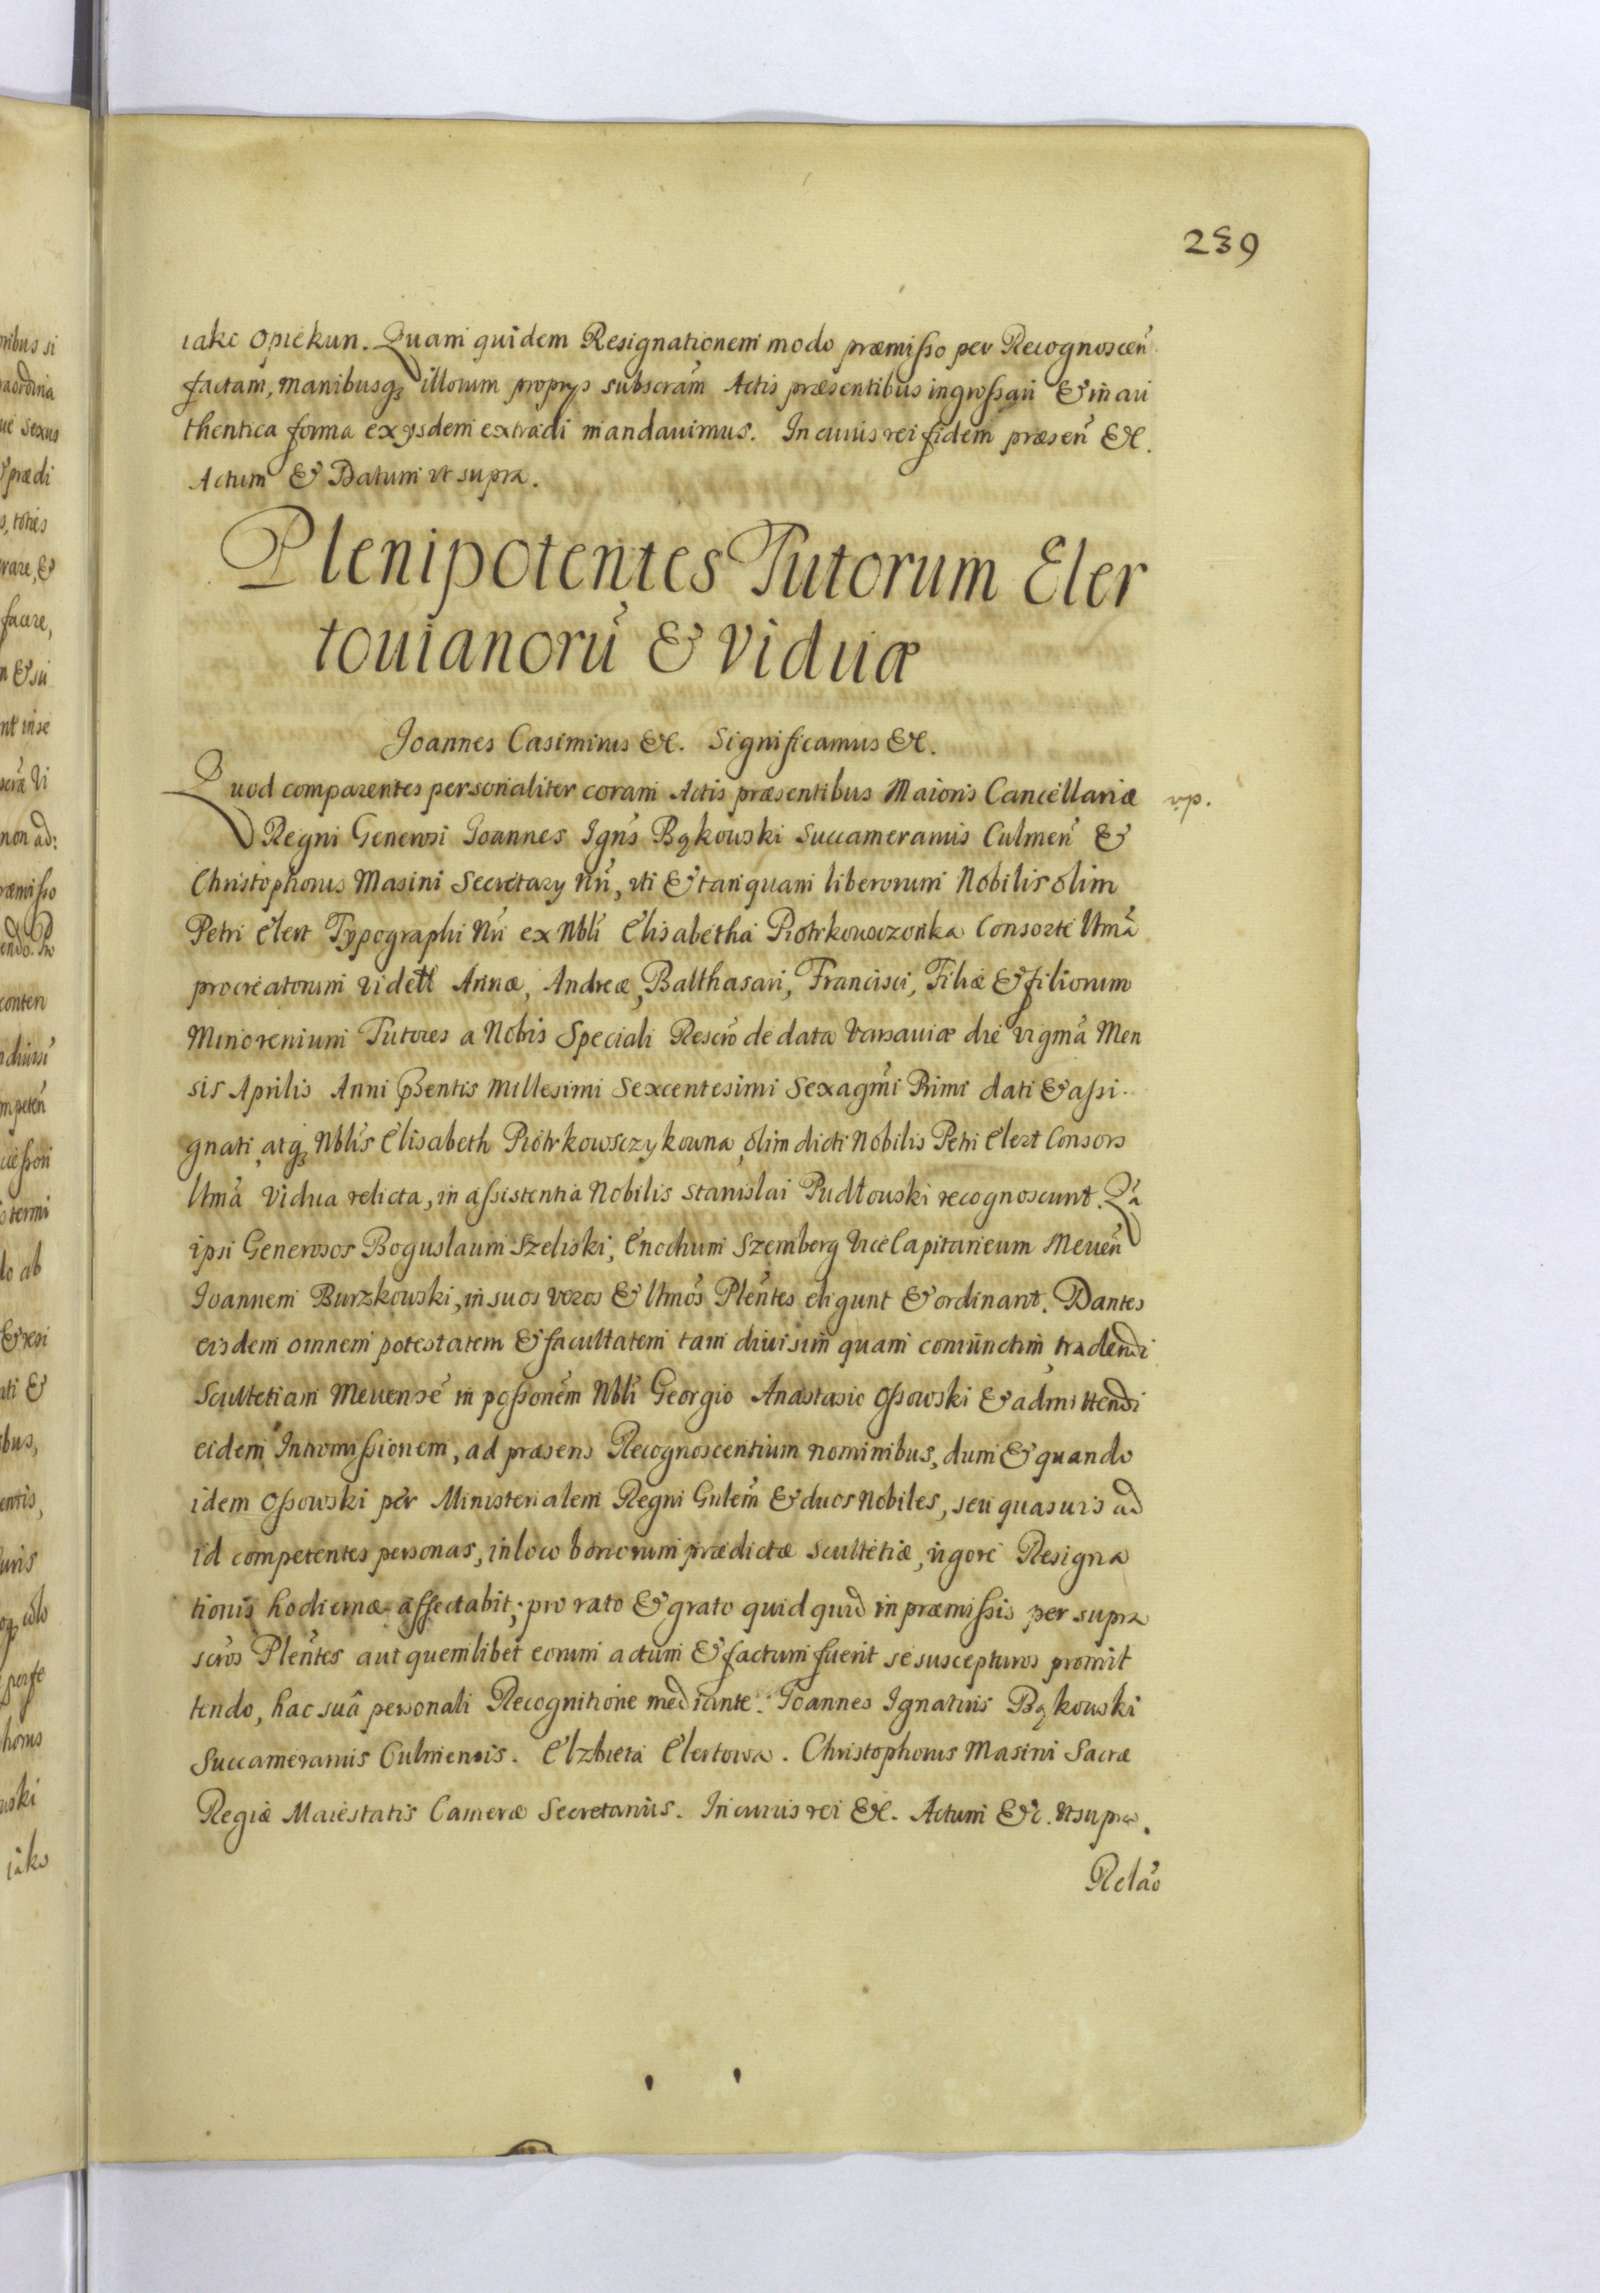 239
iako opiekun. Quam quidem Resignationem modo præmisso per Recognoscen̄
factam, manibusq3 illorum proprys subscrām Actis præsentibus ingrossari & in au
thentica forma ex ysdem extradi mandauimus. In cuius rei fidem præsen̄ &c.
Actum & Datum vt supra.
Plenipotentes Tutorum Eler
touianorū & Viduæ
Joannes Casimirus &c. Significamus &c.
Quod comparentes personaliter coram Actis præsentibus Maioris Cancellariæ
vp.
Regni Generosi Joannes Ign̄s Bąkowski Succamerarius Culmen̄ &
Christophorus Masini Secretary Nri, vti & tanquam liberorum Nobilis olim
Petri Elert Typographi Nri ex Nbli Elisabetha Piotrkowczonka Consorte Vltmā
procreatorum videlt Annæ, Andreæ, Balthasari, Francisci, Filiæ & filiorum
Minorenium Tutores a Nobis Speciali Rescrō de data Varsauiæ die vigmā Men
sis Aprilis Anni p̄sentis Millesimi Sexcentesimi Sexagmi Primi dati & assi
gnati, atq3 Nblis Elisabeth Piotrkowsczykowna, olim dicti Nobilis Petri Elert Consors
Vltmā Vidua relicta, in assistentia Nobilis Stanislai Pudłouski recognoscunt. Qā
ipsi Generosos Boguslaum Szeliski, Enochum Szemberg Vice Capitaneum Meuen̄
Joannem Burzkowski, in suos veros & Vltmos Plen̄tes eligunt & ordinant. Dantes
eisdem omnem potestatem & facultatem tam diuisim quam coniunctim tradendi
Scultetiam Meuensē in possonēm Nbli Georgio Anastasio Ossowski & admittendi
eidem Intromissionem, ad præsens Recognoscentium nominibus, dum & quando
idem Ossowski per Ministerialem Regni Gnlēm & duos Nobiles, seu quasuis ad
id competentes personas, in loco bonorum prædictæ Scultetiæ, vigore Resigna
tionis hodiernæ affectabit; pro rato & grato quidquid in præmissis per supra
scr̄os Plen̄tes aut quemlibet eorum actum & factum fuerit se suscepturos promit
tendo, hac suâ personali Recognitione mediante. Joannes Ignatius Bąkowski
Succamerarius Culmensis. Elzbieta Elertowa. Christophorus Masini Sacræ
Regiæ Maiestatis Cameræ Secretarius. In cuius rei &c. Actum &c. vt supra.
Relāo